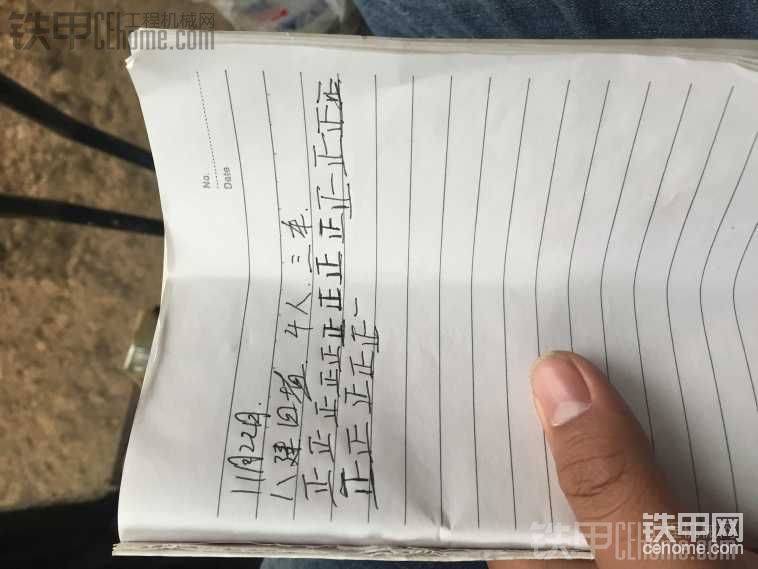 铁甲工程机械网
CEhome.com
No.
Date
11月22日.
4人 三车.
正正正正正正正正正正一正正正
正正正正正一
铁甲网
cehome.com